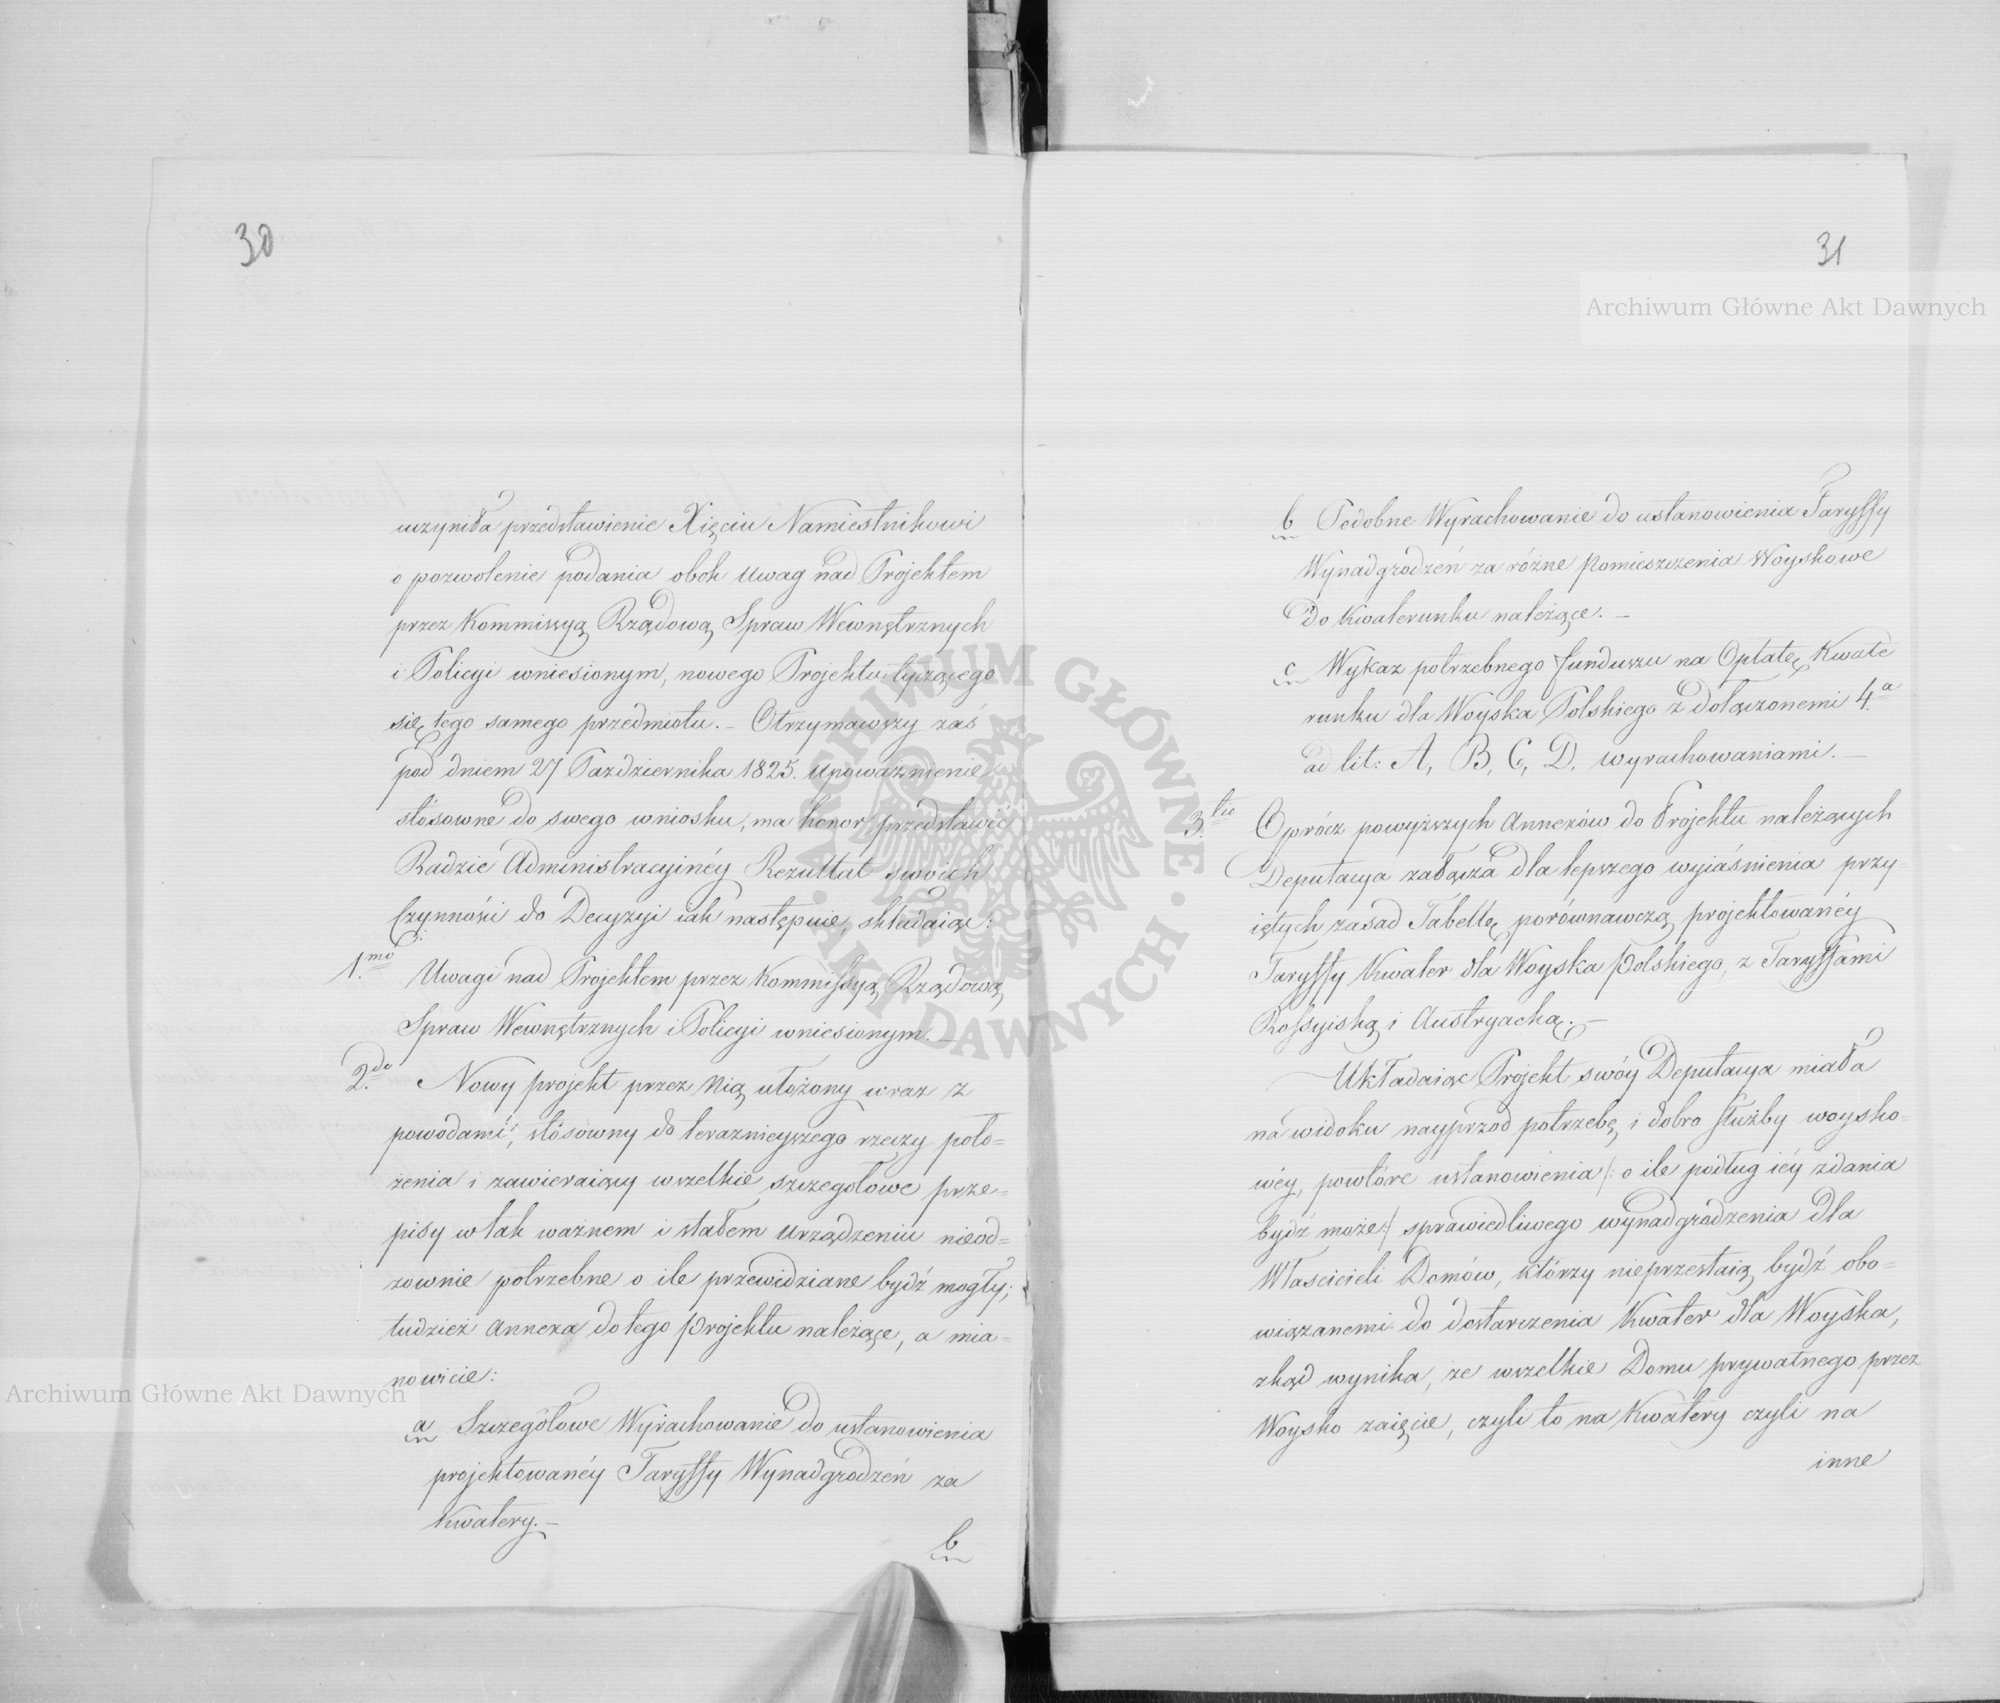 30
uczyniła przedstawienie Xięciu Namiestnikowi
o pozwolenie podania obok Uwag nad Projektem
przez Kommissyą Rządową Spraw Wewnętrznych
i Policyi wniesionym, nowego Projektu tyczącego
się tego samego przedmiotu. – Otrzymawszy zaś
pod dniem 27 Pazdziernika 1825. upoważnienie
stósowne do swego wniosku, ma honor przedstawić
Radzie Administracyinéy Rezultat swoich
Czynności do Decyzyi iak następuie, składaiąc:
1.mo Uwagi nad Projektem przez Kommissyą Rządową
Spraw Wewnętrznych i Policyi wniesionym. –
2.do Nowy projekt przez Nią ułożony wraz z
powodami, stósowny do teraznieyszego rzeczy poło=
żenia i zawieraiący wszelkie szczegółowe prze=
pisy w tak ważnem i stałem urządzeniu nieod=
zownie potrzebne o ile przewidziane bydź mogły;
tudzież Annexa do tego Projektu należące, a mia=
nowicie:
a Szczegółowe Wyrachowanie do ustanowienia
projektowanéy Taryffy Wynadgrodzeń za
Kwatery. –
b
31
b Podobne Wyrachowanie do ustanowienia Taryffy
Wynadgrodzeń za różne Pomieszczenia Woyskowe
do Kwaterunku należące. –
c Wykaz potrzebnego funduszu na Opłatę Kwate
runku dla Woyska Polskiego z dołączonemi 4.a
ad lit: A, B, C, D. wyrachowaniami. –
3.tio Oprócz powyższych Annexów do Projektu należących
Deputacya załącza dla lepszego wyjaśnienia przy=
iętych zasad Tabellę porównawczą projektowanéy
Taryffy Kwater dla Woyska Polskiego, z Taryffami
Rossyiską i Austryacką. –
Układaiąc Projekt swóy Deputacya miała
na widoku nayprzod potrzebę i dobro służby woysko=
wéy, powtóre ustanowienia /: o ile podług iéy zdania
bydź może :/ sprawiedliwego wynadgrodzenia dla
Właścicieli Domów, którzy nieprzestaią bydź obo=
wiązanemi do dostarczenia Kwater dla Woyska,
zkąd wynika, że wszelkie Domu prywatnego przez
Woysko zaięcie, czyli to na Kwatery czyli na
inne
Archiwum Główne Akt Dawnych
Archiwum Główne Akt Dawnych
ARCHIWUM GŁÓWNE · AKT DAWNYCH ·